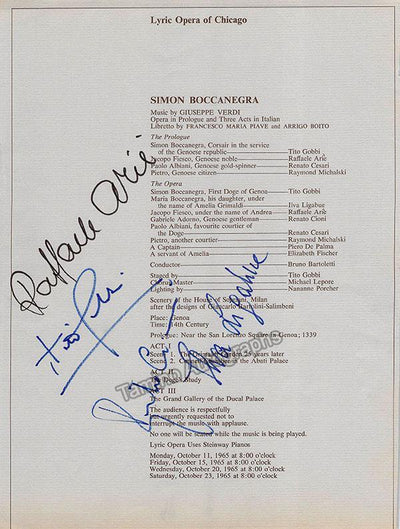 Lyric Opera of Chicago
SIMON BOCCANEGRA
Music by GIUSEPPE VERDI
Opera in Prologue and Three Acts in Italian
Libretto by FRANCESCO MARIA PIAVE and ARRIGO BOITO
The Prologue
Simon Boccanegra, Corsair in the service
of the Genoese republic Tito Gobbi
Jacopo Fiesco, Genoese noble Raffaele Ariè
Paolo Albiani, Genoese gold-spinner Renato Cesari
Pietro, Genoese citizen Raymond Michalski
The Opera
Simon Boccanegra, First Doge of Genoa Tito Gobbi
Maria Boccanegra, his daughter, under
the name of Amelia Grimaldi Ilva Ligabue
Jacopo Fiesco, under the name of Andrea Raffaele Ariè
Gabriele Adorno, Genoese gentleman Renato Cioni
Paolo Albiani, favourite courtier of
the Doge Renato Cesari
Pietro, another courtier Raymond Michalski
A Captain Piero De Palma
A servant of Amelia Elizabeth Fischer
Conductor Bruno Bartoletti
Staged by Tito Gobbi
Chorus Master Michael Lepore
Lighting by Nananne Porcher
Scenery of the House of Sormani, Milan
after the designs of Giancarlo Bartolini-Salimbeni
Place: Genoa
Time: 14th Century
Prologue: Near the San Lorenzo Square in Genoa; 1339
ACT I
Scene 1. The Grimaldi Garden 25 years later
Scene 2. Council Chamber in the Abati Palace
ACT II
The Doge's Study
ACT III
The Grand Gallery of the Ducal Palace
The audience is respectfully
but urgently requested not to
interrupt the music with applause.
No one will be seated while the music is being played.
Lyric Opera Uses Steinway Pianos
Monday, October 11, 1965 at 8:00 o'clock
Friday, October 15, 1965 at 8:00 o'clock
Wednesday, October 20, 1965 at 8:00 o'clock
Saturday, October 23, 1965 at 8:00 o'clock
Raffaele Ariè
Tito Gobbi
Ilva Ligabue
Tamino Autographs